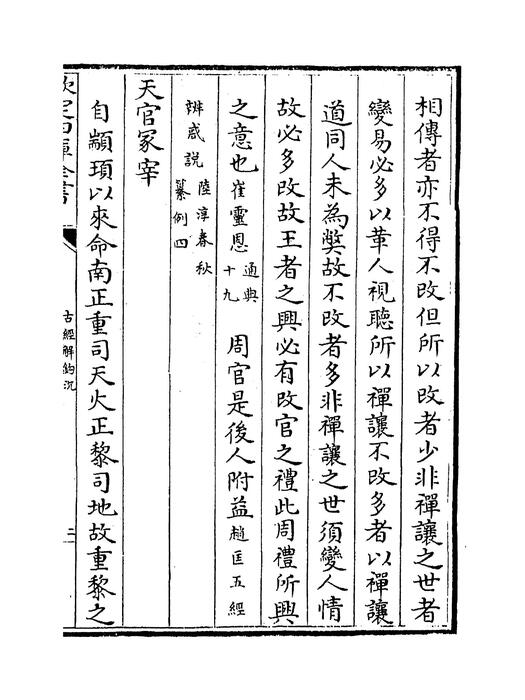 相傳者亦不得不改但所以改者少非禪讓之世者
變易必多以革人視聽所以禪讓不改多者以禪讓
道同人未為獘故不改者多非禪讓之世須變人情
故必多改故王者之興必有改官之禮此周禮所興
之意也崔靈恩通典十九　周官是後人附益趙匡五經
辨惑說陸淳春秋纂例四
天官冡宰
自顓頊以來命南正重司天火正黎司地故重黎之
欽定四庫全書
古經解鉤沉
二